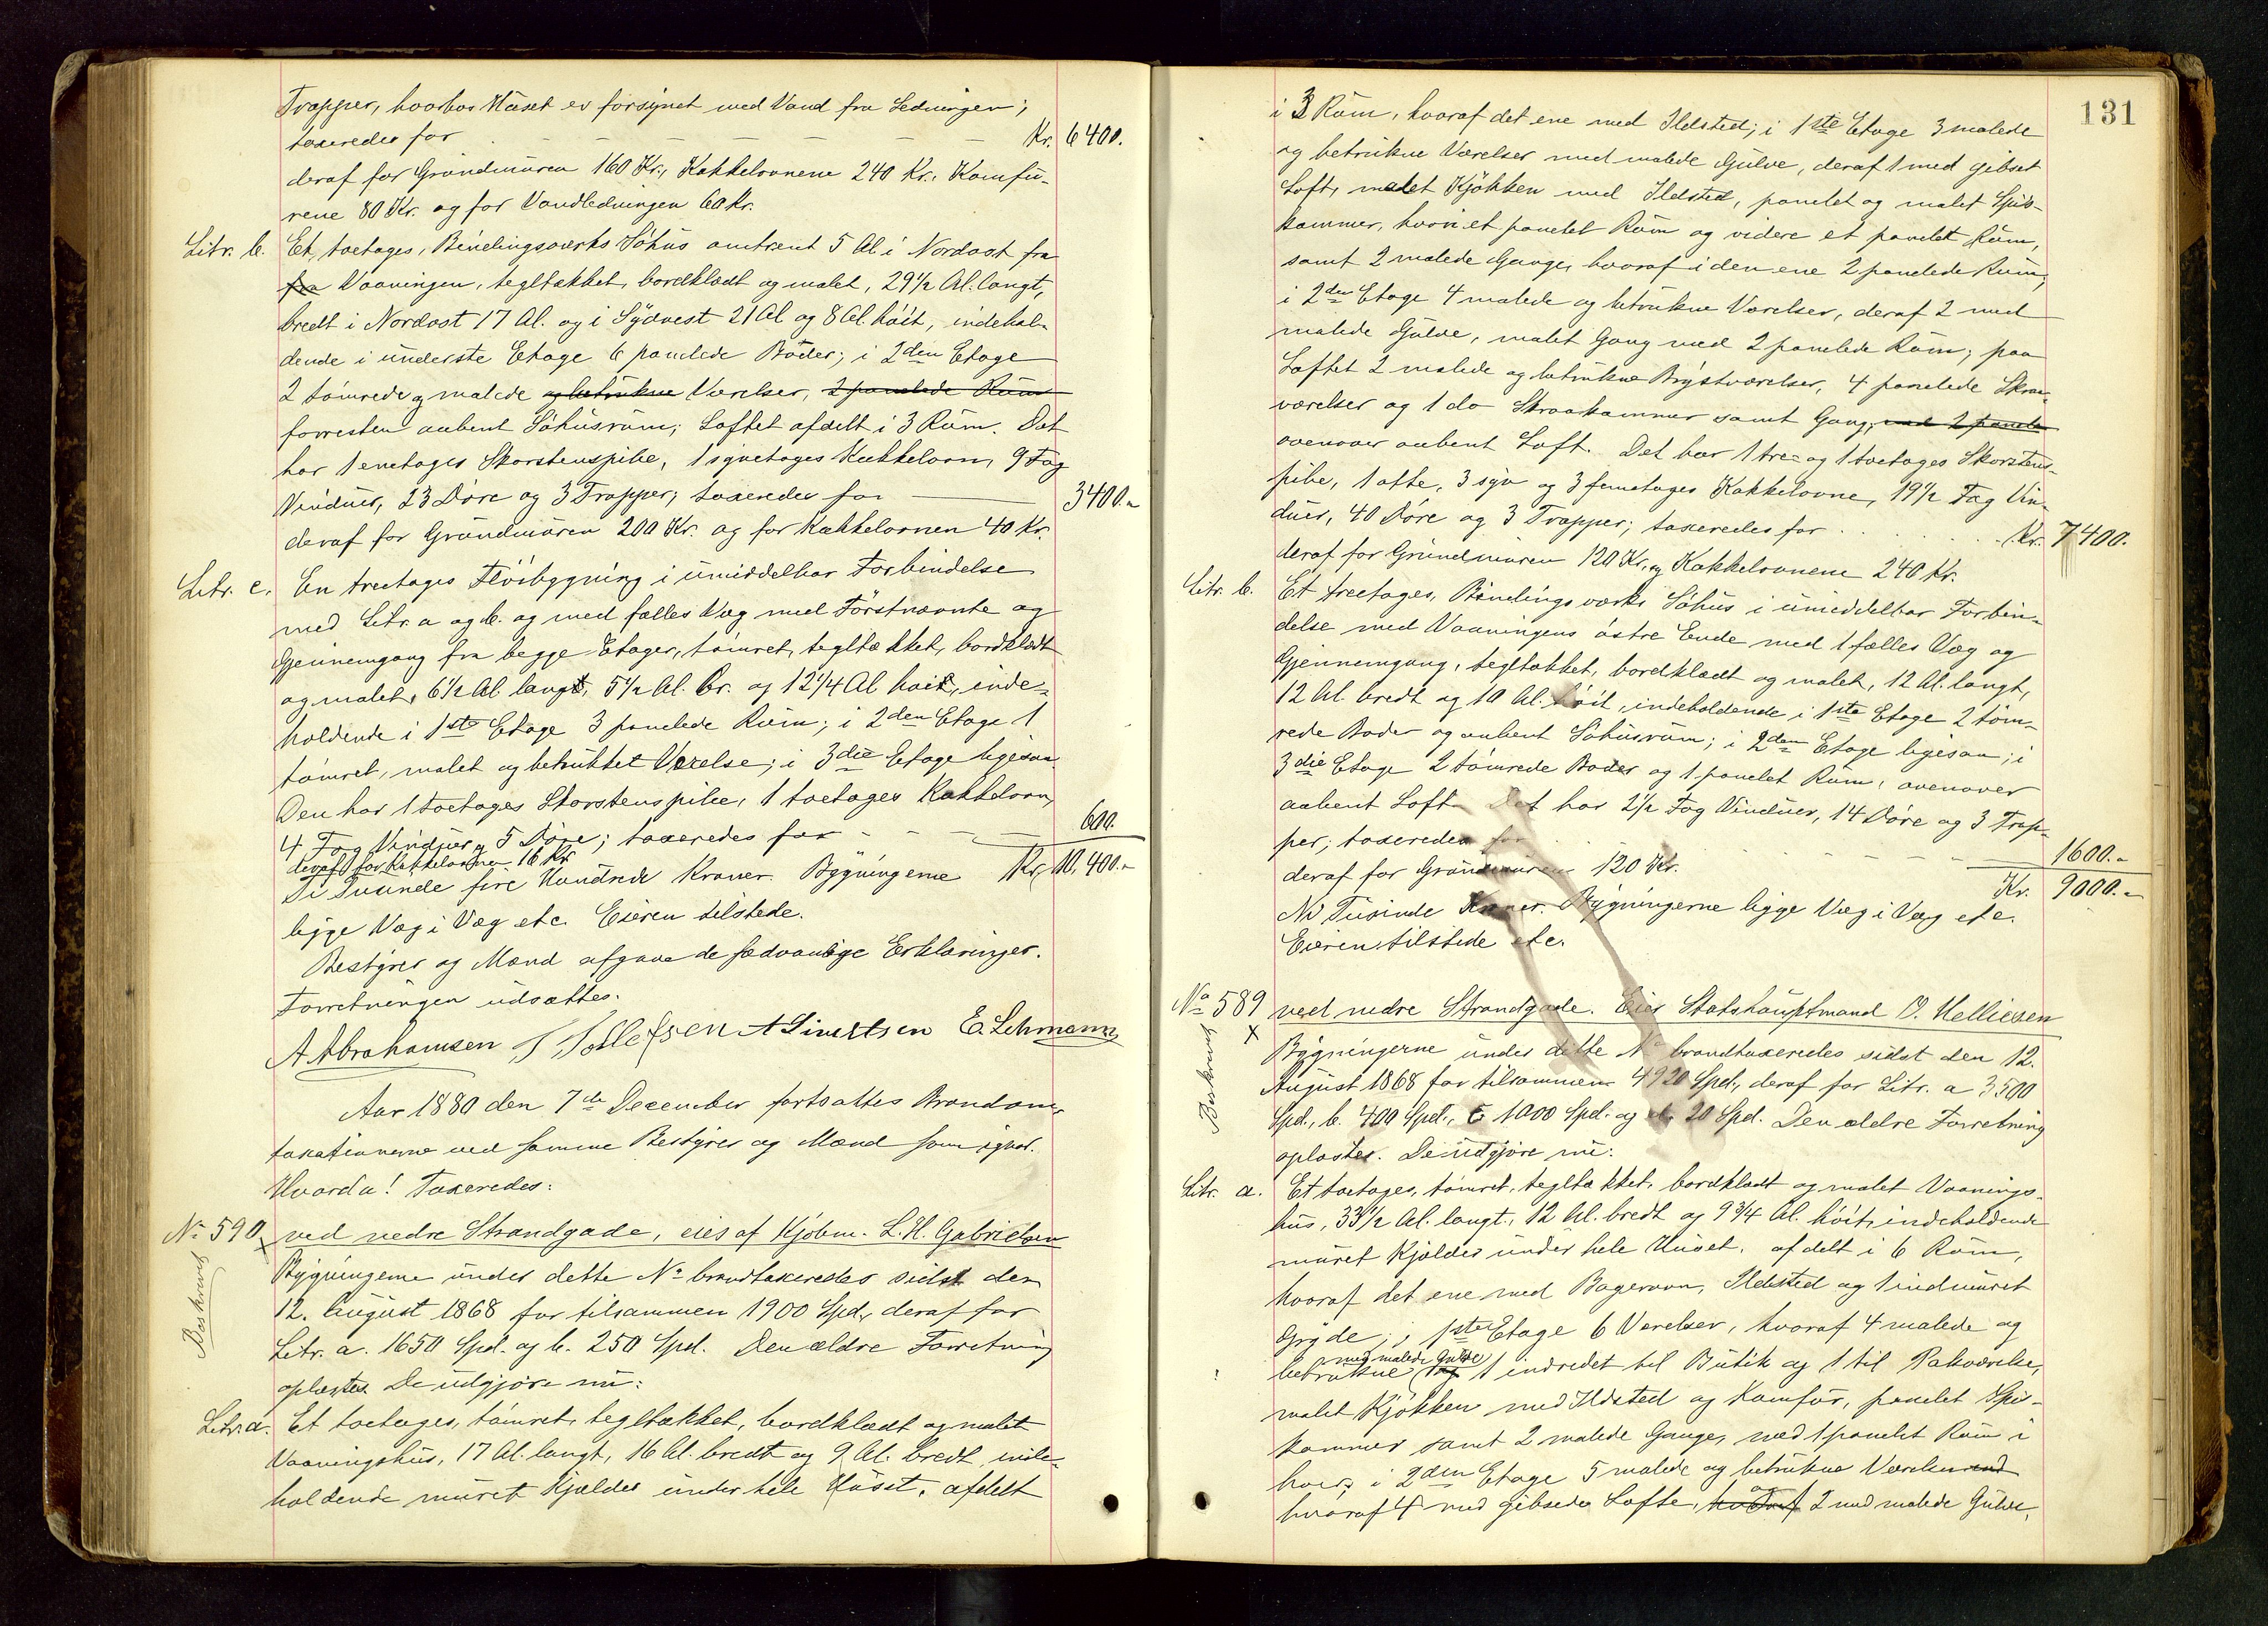 Trapper, hvorhos Huset er forsynet med Vand fra Ledningen;
taxeredes for Kr. 6400.
deraf for Grundmuren 160 Kr., Kakkelovnene 240 Kr., Komfu-
rene 80 Kr. og for Vandledningen 60 Kr.
Litr. b. Et toetages, Bindingsværks Söhus omtrent 5 Al. i Nordost fra
fra Vaaningen, tegltækket, bordklædt og malet, 29 1/2 Al. langt,
bredt i Nordost 17 Al. og i Sydvest 21 Al. og 8 Al. höit, indehol-
dende i underste Etage 6 panelede Boder; i 2den Etage
2 tömrede og malede og betrukne Værelser, 2 panelede Rum
forresten aabent Söhusrum; Loftet afdelt i 3 Rum. Det
har 1 enetages Skorstenspibe, 1 syvetages Kakkelovn, 9 Fag
Vinduer, 23 Döre og 3 Trapper; taxeredes for 3400.-
deraf for Grundmuren 200 Kr. og for Kakkelovnen 40 Kr.
Litr. c. En treetages Flöibygning i umiddelbar Forbindelse
med Litr. a og b. og med fælles Væg med Förstnævnte og
Gjennemgang fra begge Etager, tömret, tegltækket, bordklædt
og malet, 6 1/2 Al. langt, 5 1/2 Al. br. og 12 1/4 Al. höit, inde-
holdende i 1ste Etage 3 panelede Rum; i 2den Etage 1
tömret, malet og betrukket Værelse; i 3die Etage ligesaa.
Den har 1 toetages Skorstenspibe, 1 toetages Kakkelovn,
4 Fag Vinduer og 5 Döre; taxeredes for 600.
deraf for Kakkelovnen 16 Kr.
Ti Tusinde fire Hundrede Kroner. Bygningerne Kr. 10,400.-
ligge Væg i Væg etc. Eieren tilstede.
Bestyrer og Mænd afgave de sædvanlige Erklæringer.
Forretningen udsattes.
A Abrahamsen T. Tollefsen A Sivertsen E. Lehmann
Aar 1880 den 7de December fortsattes Brandom-
taxationerne ved samme Bestyrer og Mænd som igaar.
Hvorda! Taxeredes:
No 590 ved nedre Strandgade, eies af Kjöbm. L. H. Gabrielsen
x
Beskrevet
Bygningerne under dette No brandtaxeredes sidst den
12. August 1868 for tilsammen 1900 Spd., deraf for
Litr. a. 1650 Spd. og b. 250 Spd. Den ældre Forretning
oplæstes. De udgjöre nu:
Litr. a. Et toetages, tömret, tegltækket, bordklædt og malet
Vaaningshus, 17 Al. langt, 16 Al. bredt og 9 Al. bredt, inde-
holdende muret Kjælder under hele Huset, afdelt
131
i 3 Rum, hvoraf det ene med Ildsted; i 1ste Etage 3 malede
og betrukne Værelser med malede Gulve, deraf 1 med gibset
Loft, malet Kjökken med Ildsted, panelet og malet Spis-
kammer, hvori et panelet Rum og videre et panelet Rum,
samt 2 malede Gange, hvoraf i den ene 2 panelede Rum;
i 2den Etage 4 malede og betrukne Værelser, deraf 2 med
malede Gulve, malet Gang med 2 panelede Rum; paa
Loftet 2 malede og betrukne Brystværelser, 4 panelede Skraa-
værelser og 1 do Skraakammer samt Gang, med 2 panele
ovenover aabent Loft. Det har 1 tre- og 1 toetages Skorstens-
pibe, 1 otte, 3 syv og 3 femetages Kakkelovne, 19 1/2 Fag Vin-
duer, 40 Döre og 3 Trapper; taxeredes for Kr. 7400.
deraf for Grundmuren 120 Kr. og Kakkelovnene 240 Kr.
Litr. b. Et treetages, Bindingsværks Söhus i umiddelbar Forbin-
delse med Vaaningens östre Ende med 1 fælles Væg og
Gjennemgang, tegltækket, bordklædt og malet, 12 Al. langt,
12 Al. bredt og 10 Al. höit, indeholdende i 1ste Etage 2 töm-
rede Boder og aabent Söhusrum; i 2den Etage ligesaa; i
3die Etage 2 tömrede Boder og 1 panelet Rum, ovenover
aabent Loft. Det har 2 1/2 Fag Vinduer, 14 Döre og 3 Trap-
per; taxeredes for 1600.-
deraf for Grundmuren 120 Kr. Kr. 9000.-
Ni Tusinde Kroner. Bygningerne ligge Væg i Væg etc.
Eieren tilstede etc.
No 589 ved nedre Strandgade. Eier Stadshauptmand O. Helliesen
x
Beskrevet
Bygningerne under dette No brandtaxeredes sidst den 12.
August 1868 for tilsammen 4920 Spd., deraf for Litr. a 3500
Spd., b. 400 Spd., c 1000 Spd. og d. 20 Spd. Den ældre Forretning
oplæstes. De udgjöre nu:
Litr. a. Et toetages, tömret, tegltækket, bordklædt og malet Vaanings-
hus, 33 1/2 Al. langt, 12 Al. bredt og 9 3/4 Al. höit, indeholdende
muret Kjælder under hele Huset, afdelt i 6 Rum,
hvoraf det ene med Bagerovn, Ildsted og 1 indmuret
Gryde; i 1ste Etage 6 Værelser, hvoraf 4 malede og
med malede Gulve
betrukne og 1 indredet til Butik og 1 til Pakværelse,
malet Kjökken med Ildsted og Komfur, panelet Spis-
kammer samt 2 malede Gange, med 1 panelet Rum i
hver; i 2den Etage 5 malede og betrukne Værelser med
hvoraf 4 med gibsede Lofte, hvoraf og 2 med malede Gulve,